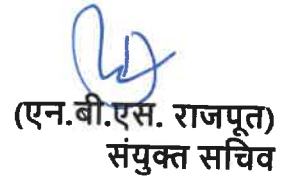 (एन.बी.एस. राजपूत)
संयुक्त सचिव